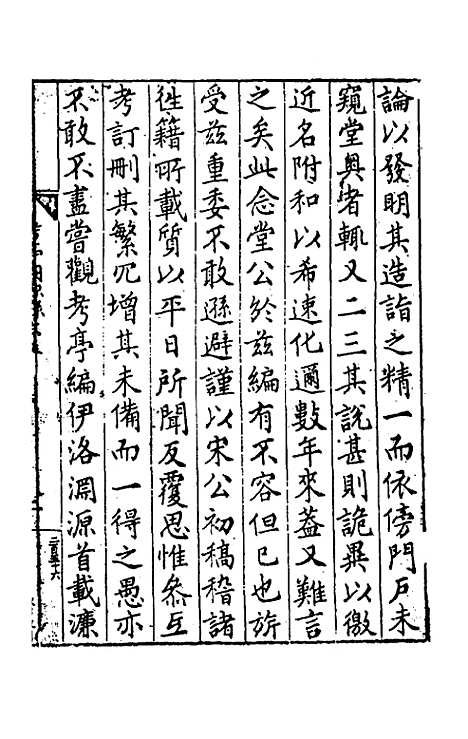 論以發明其造詣之精一而依傍門戸未
窺堂奥者輒又二三其說甚則詭異以徼
近名附和以希速化邇數年來葢又難言
之矣此念堂公於兹編有不容但已也旂
受兹重委不敢遜避謹以宋公初稿稽諸
徃籍所載質以平日所聞反覆思惟叅互
考訂刪其繁冗增其未備而一得之愚亦
不敢不盡嘗觀考亭編伊洛淵源首載濂